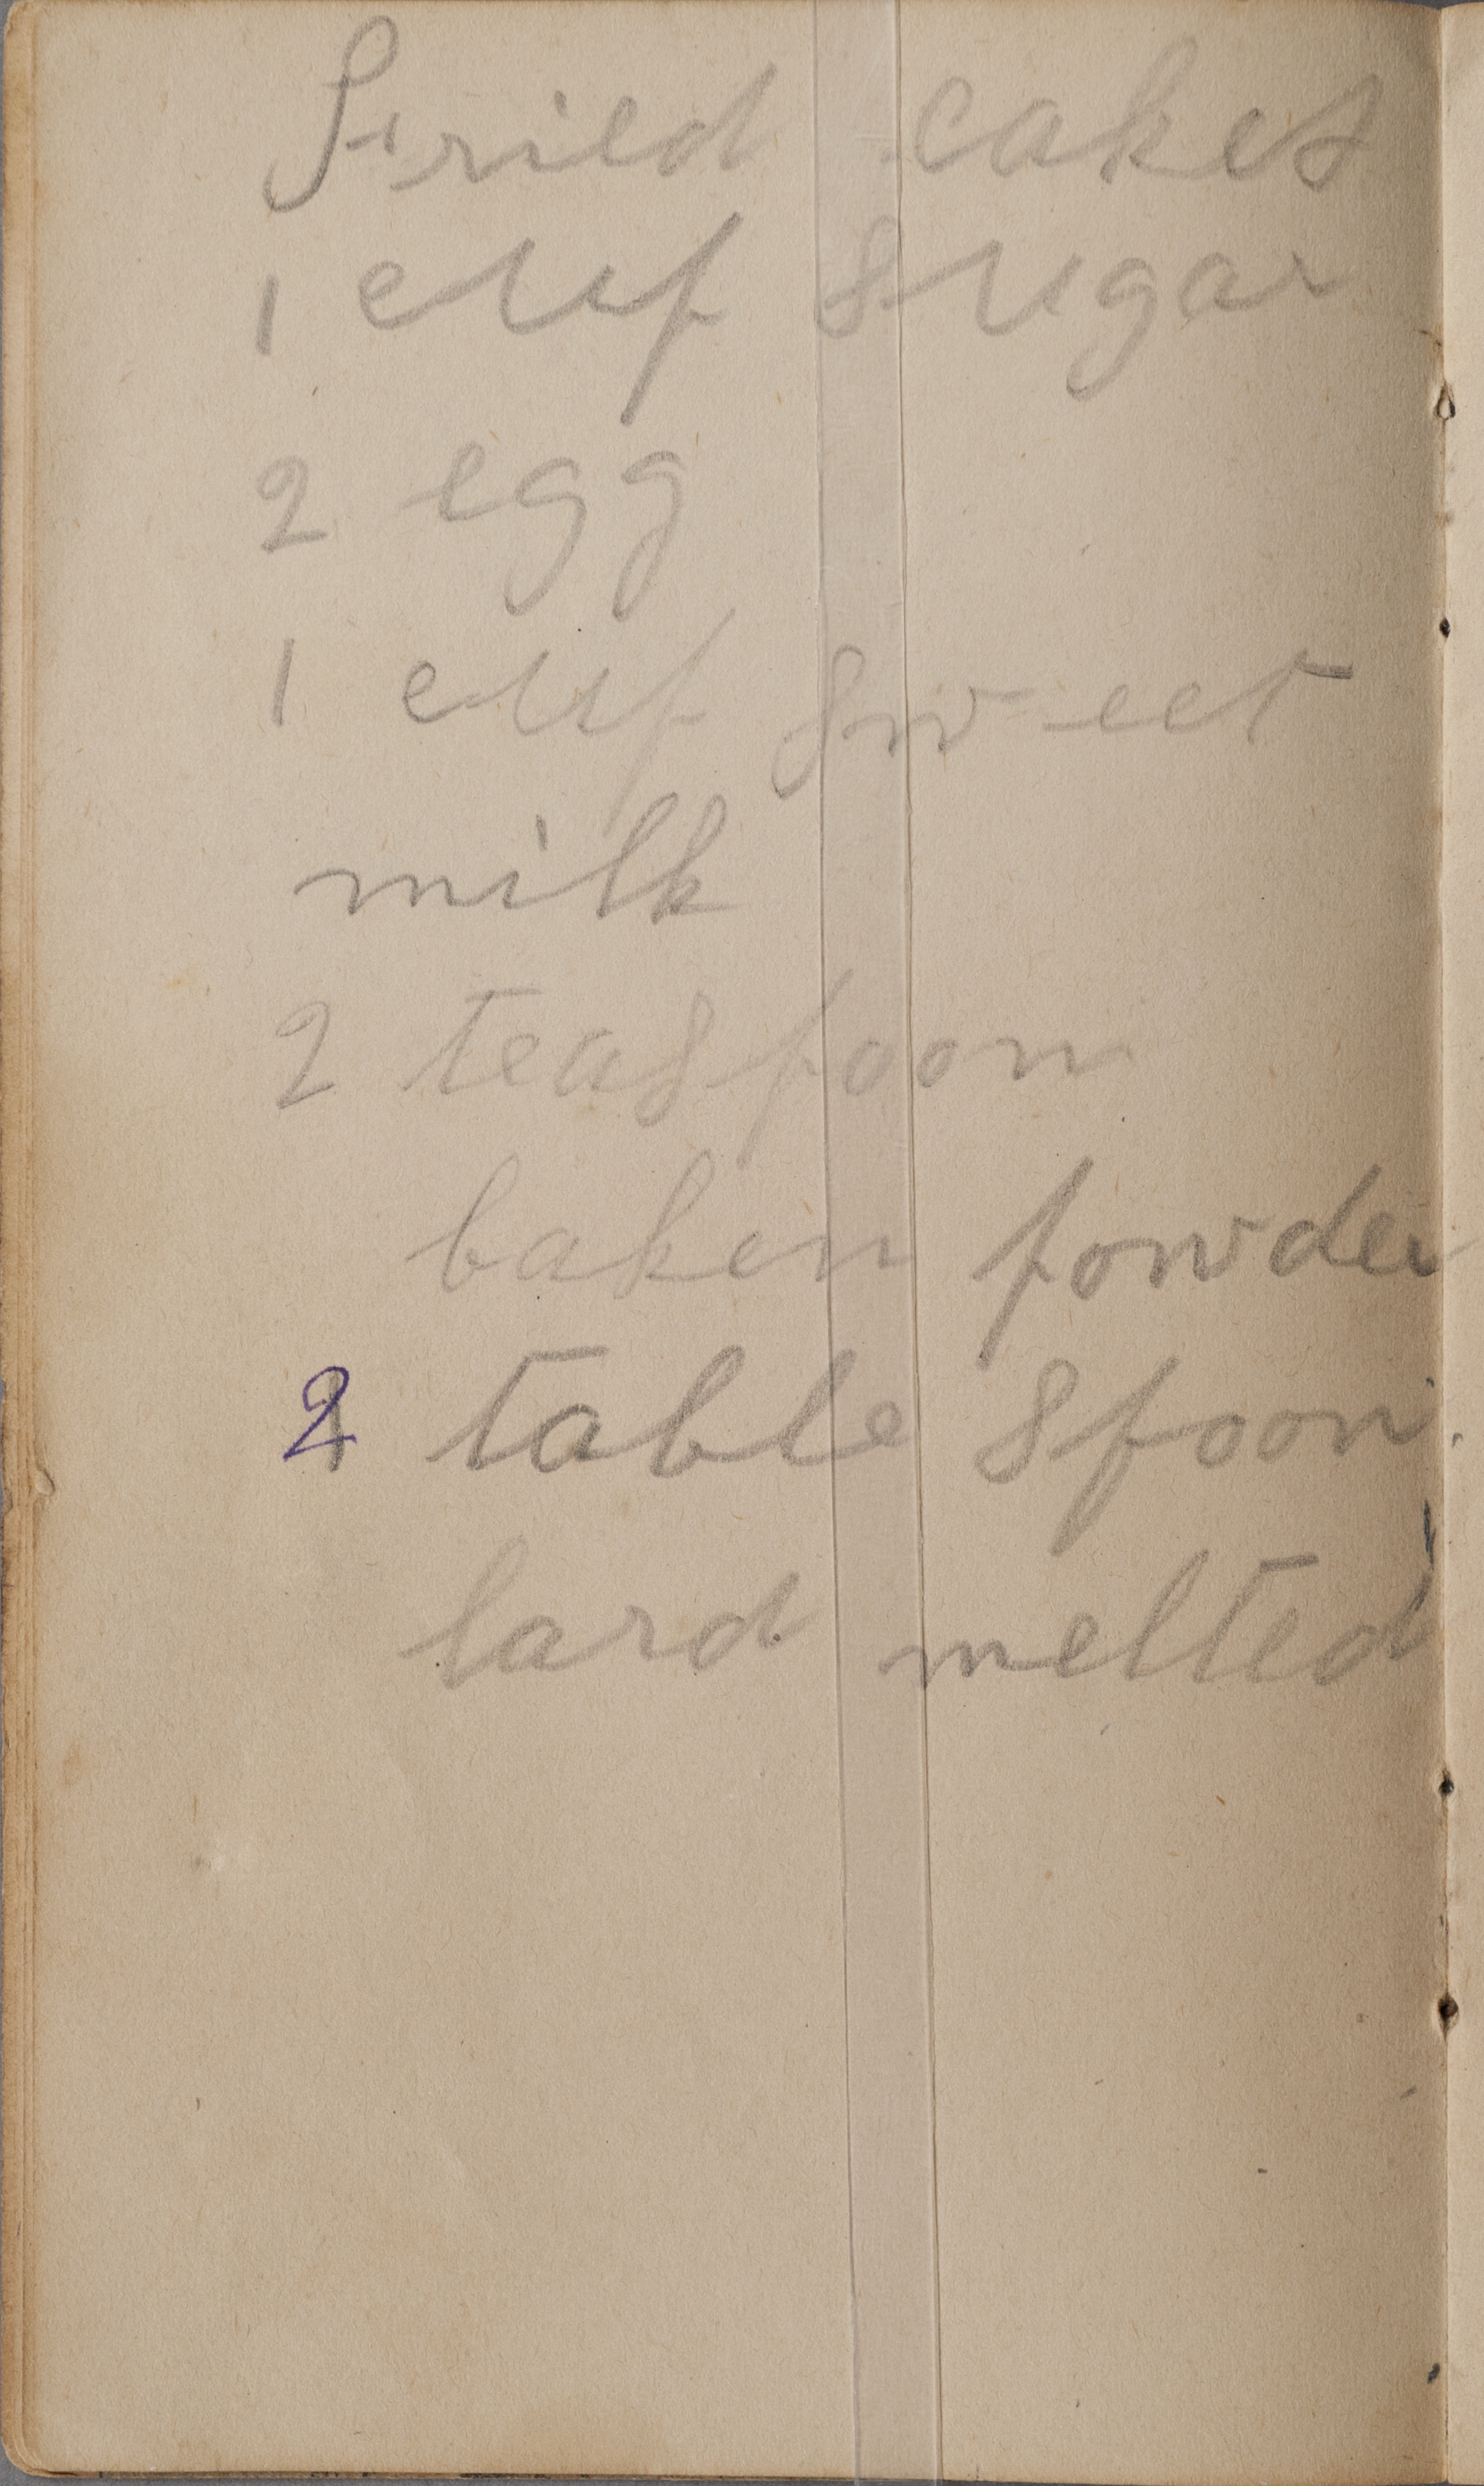 Fried cakes
1 cup sugar
2 egg
1 cup sweet
milk
2 teaspoon
baken powder
2 table spoon
lard melted